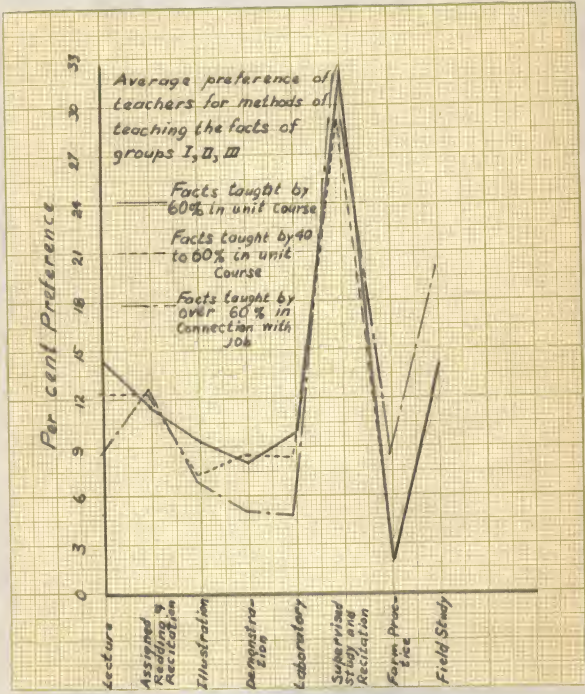 Average preference of
teachers for methods of
teaching the facts of
groups I, II, III
Facts taught by
60% in unit course
Facts taught by 40
to 60% in unit
Course
Facts taught by
over 60% in
Connection with
Job
Per cent Preference
33
30
27
24
21
18
15
12
9
6
3
0
Lecture
Assigned
Redding &
Recitation
Illustration
Demonstra-
tion
Laboratory
Supervised
Study and
Recitation
Farm Prac-
tice
Field Study